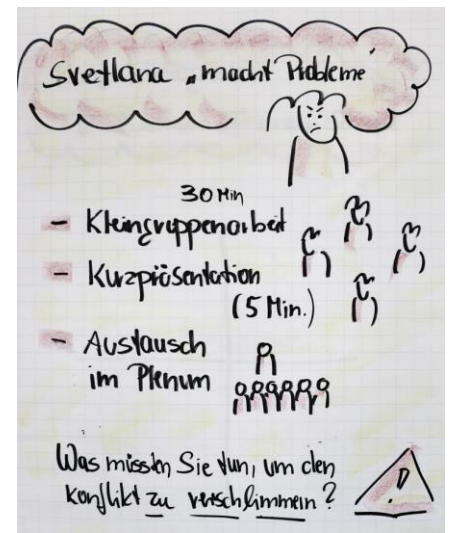 Svetlana „macht Probleme"
30 Min
- Kleingruppenarbeit
- Kurzpräsentation
(5 Min.)
- Austausch
im Plenum
Was müssten Sie tun, um den
Konflikt zu verschlimmern?